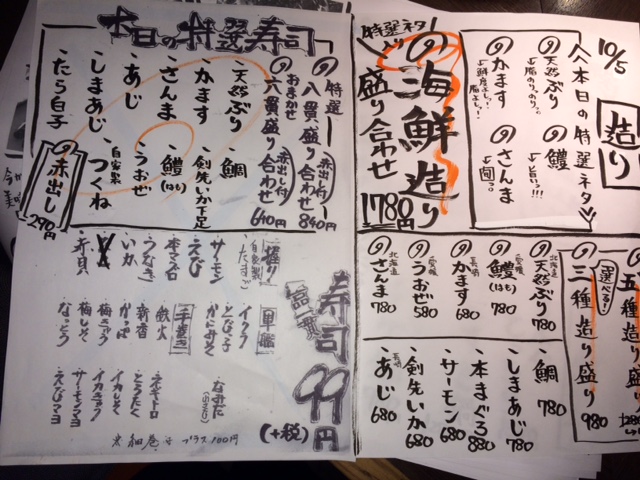 10/5
造り
本日の特選ネタ
の天然ぶり
の鱧
のかます
のさんま
特選ネタ
の海鮮造り
盛り合わせ
1780円
五種造り盛り
選べる！
三種造り盛り
980
北海道
天然ぶり
780
愛媛
の鱧(はも)
780
長崎
のかます
680
愛媛
のうおぜ
580
北海道
のさんま
780
鯛
780
しまあじ
780
本まぐろ
880
サーモン
680
長崎
剣先いか
680
あじ
680
本日の特選寿司
特選
の八貫盛り合わせ
赤出し付
840円
おまかせ
の六貫盛り合わせ
赤出し付
640円
・天然ぶり
・鯛
・かます
・剣先いか下足
・さんま
・鱧(はも)
・あじ
・うおぜ
・しまあじ
・自家製つくね
・たら白子
の赤出し
290円
寿司
一貫
99円
(+税)
握り
・自家製たまご
・サーモン
・えび
・本マグロ
・うなぎ
・いか
・赤貝
軍艦
・イクラ
・とび子
・かにみそ
・なみだ
手巻き
・鉄火
・新香
・かっぱ
・梅きゅう
・梅しそ
・なっとう
・ネギトロ
・とろたく
・イカしそ
・イカきゅう
・サーモンマヨ
・えびマヨ
※細巻は プラス100円